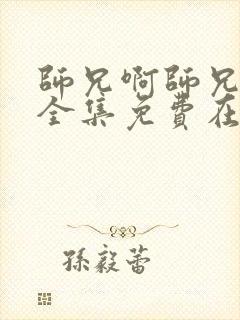 師兄啊師兄
全集免費在
孫毅蕾